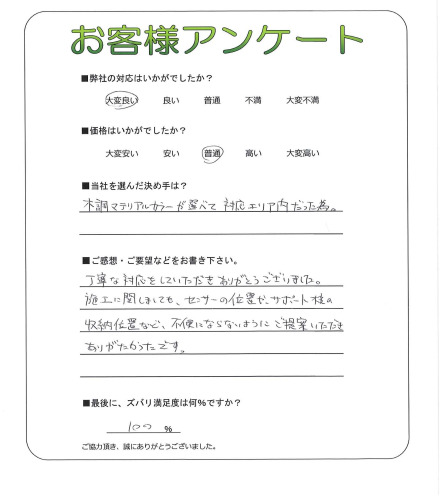 お客様アンケート
■弊社の対応はいかがでしたか？
大変良い 良い 普通 不満 大変不満
■価格はいかがでしたか？
大変安い 安い 普通 高い 大変高い
■当社を選んだ決め手は？
木調マテリアルカラーが選べて 対応エリア内だった為。
■ご感想・ご要望などをお書き下さい。
丁寧な対応をしていただきありがとうございました。
施工に関しましても、センサーの位置や、サポート柱の
収納位置など、不便にならないようにご提案いただき
ありがたかったです。
■最後に、ズバリ満足度は何％ですか？
100 ％
ご協力頂き、誠にありがとうございました。